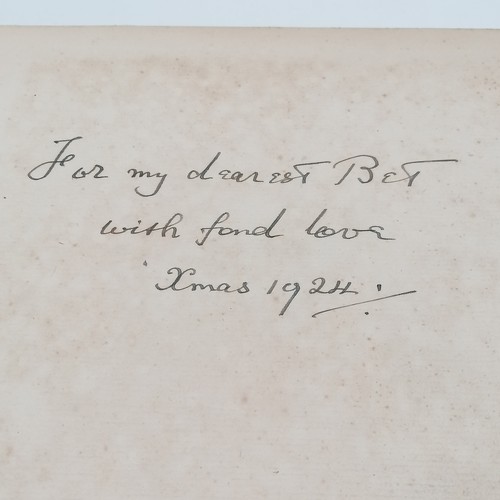 For my dearest Bet
with fond love
Xmas 1924.